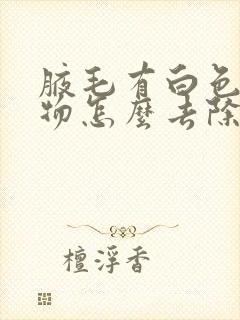 腋毛有白色
物怎麼去除
檀浮香